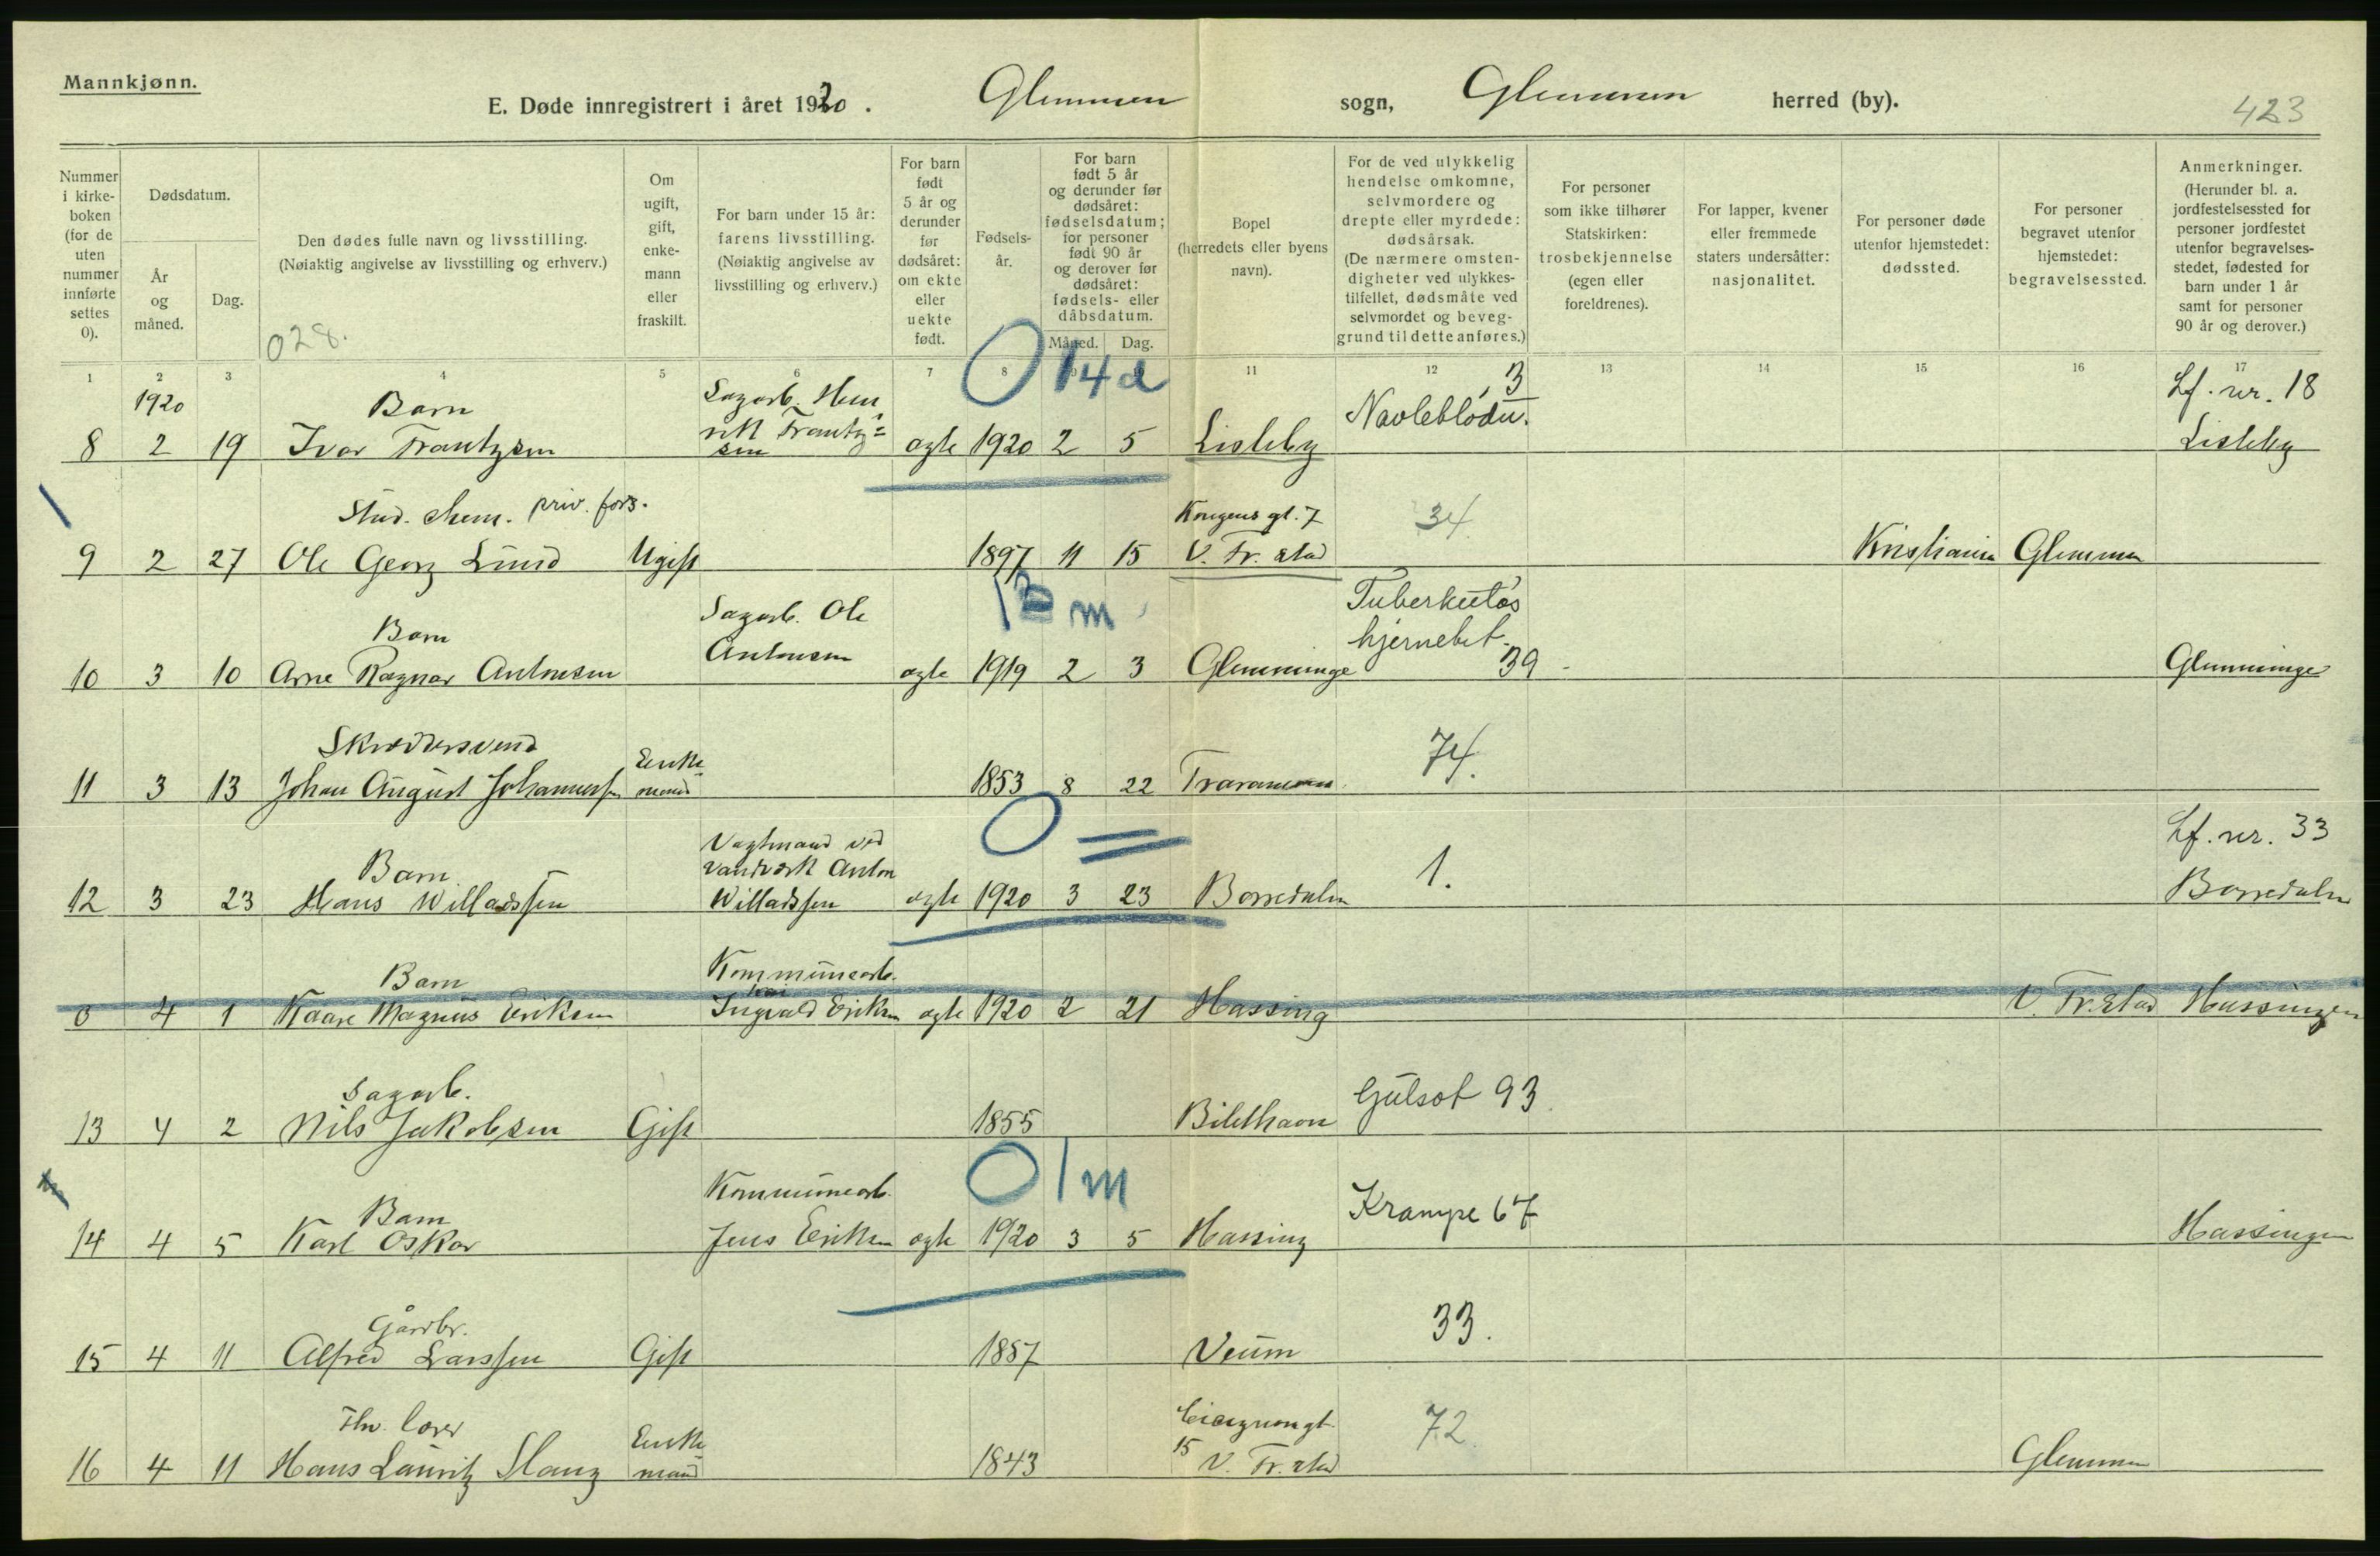 Mannkjønn.
E. Døde innregistrert i året 1920. Glemmen sogn, Glemmen herred (by).
423
Nummer i kirke-boken (for de uten nummer innførte settes 0).
Dødsdatum.
År og måned.
Dag.
Den dødes fulle navn og livsstilling.
(Nøiaktig angivelse av livsstilling og erhverv.)
028.
Om ugift, gift, enke-mann eller fraskilt.
For barn under 15 år: farens livsstilling. (Nøiaktig angivelse av livsstilling og erhverv.)
For barn født 5 år og derunder før dødsåret: om ekte eller uekte født.
Fødsels-år.
For barn født 5 år og derunder før dødsåret: fødselsdatum; for personer født 90 år og derover før dødsåret: fødsels- eller dåbsdatum.
Måned. Dag.
Bopel (herredets eller byens navn).
For de ved ulykkelig hendelse omkomne, selvmordere og drepte eller myrdede: dødsårsak. (De nærmere omsten-digheter ved ulykkes-tilfellet, dødsmåte ved selvmordet og beveg-grund til dette anføres.)
For personer som ikke tilhører Statskirken: trosbekjennelse (egen eller foreldrenes).
For lapper, kvener eller fremmede staters undersåtter: nasjonalitet.
For personer døde utenfor hjemstedet: dødssted.
For personer begravet utenfor hjemstedet: begravelsessted.
Anmerkninger. (Herunder bl. a. jordfestelsessted for personer jordfestet utenfor begravelses-stedet, fødested for barn under 1 år samt for personer 90 år og derover.)
1 2 3 4 5 6 7 8 11 12 13 14 15 16 17
0 14 d
1920 Barn Sagarb. Hen 3 Lf. nr. 18
8 2 19 Ivar Frantzsen rik Frantz= sen ægte 1920 2 5 Lisleby Navleblødn. Lisleby
Stud. chem. priv. fors. Kongens gt. 7 34
9 2 27 Ole Georg Lund Ugift 1897 11 15 V. Fr.stad Kristiania Glemmen
m
Barn Sagarb. Ole Tuberkuløs
10 3 10 Arne Ragnar Antonsen Antonsen ægte 1919 2 3 Glemminge hjernebet. 39 Glemminge
Skræddersvend Enke= 74.
11 3 13 Johan August Johanness mand 1853 8 22 Traraneren
0 =
Barn Vagtmand ved vandværk Anton 1. Lf. nr. 33
12 3 23 Hans Willadssen Willadssen ægte 1920 3 23 Borredalen Borredalen
Barn Kommunearb.
0 4 1 Kaare Magnus Eriksen Ingvald Eriksen ægte 1920 2 21 Hassing V. Fr.stad Hassingen
Sagarb. Gulsot 93
13 4 2 Nils Jakobsen Gift 1855 Bilethavn
0 1 m
Barn Kommunearb. Krampe 67
14 4 5 Karl Oskar Jens Eriksen ægte 1920 3 5 Hassing Hassingen
Gårdbr. 33.
15 4 11 Alfred Larssen Gift 1857 Veum
Fhv. lærer Enke= 72
16 4 11 Hans Lauritz Slang mand 1843 15 V. Fr.stad Glemmen